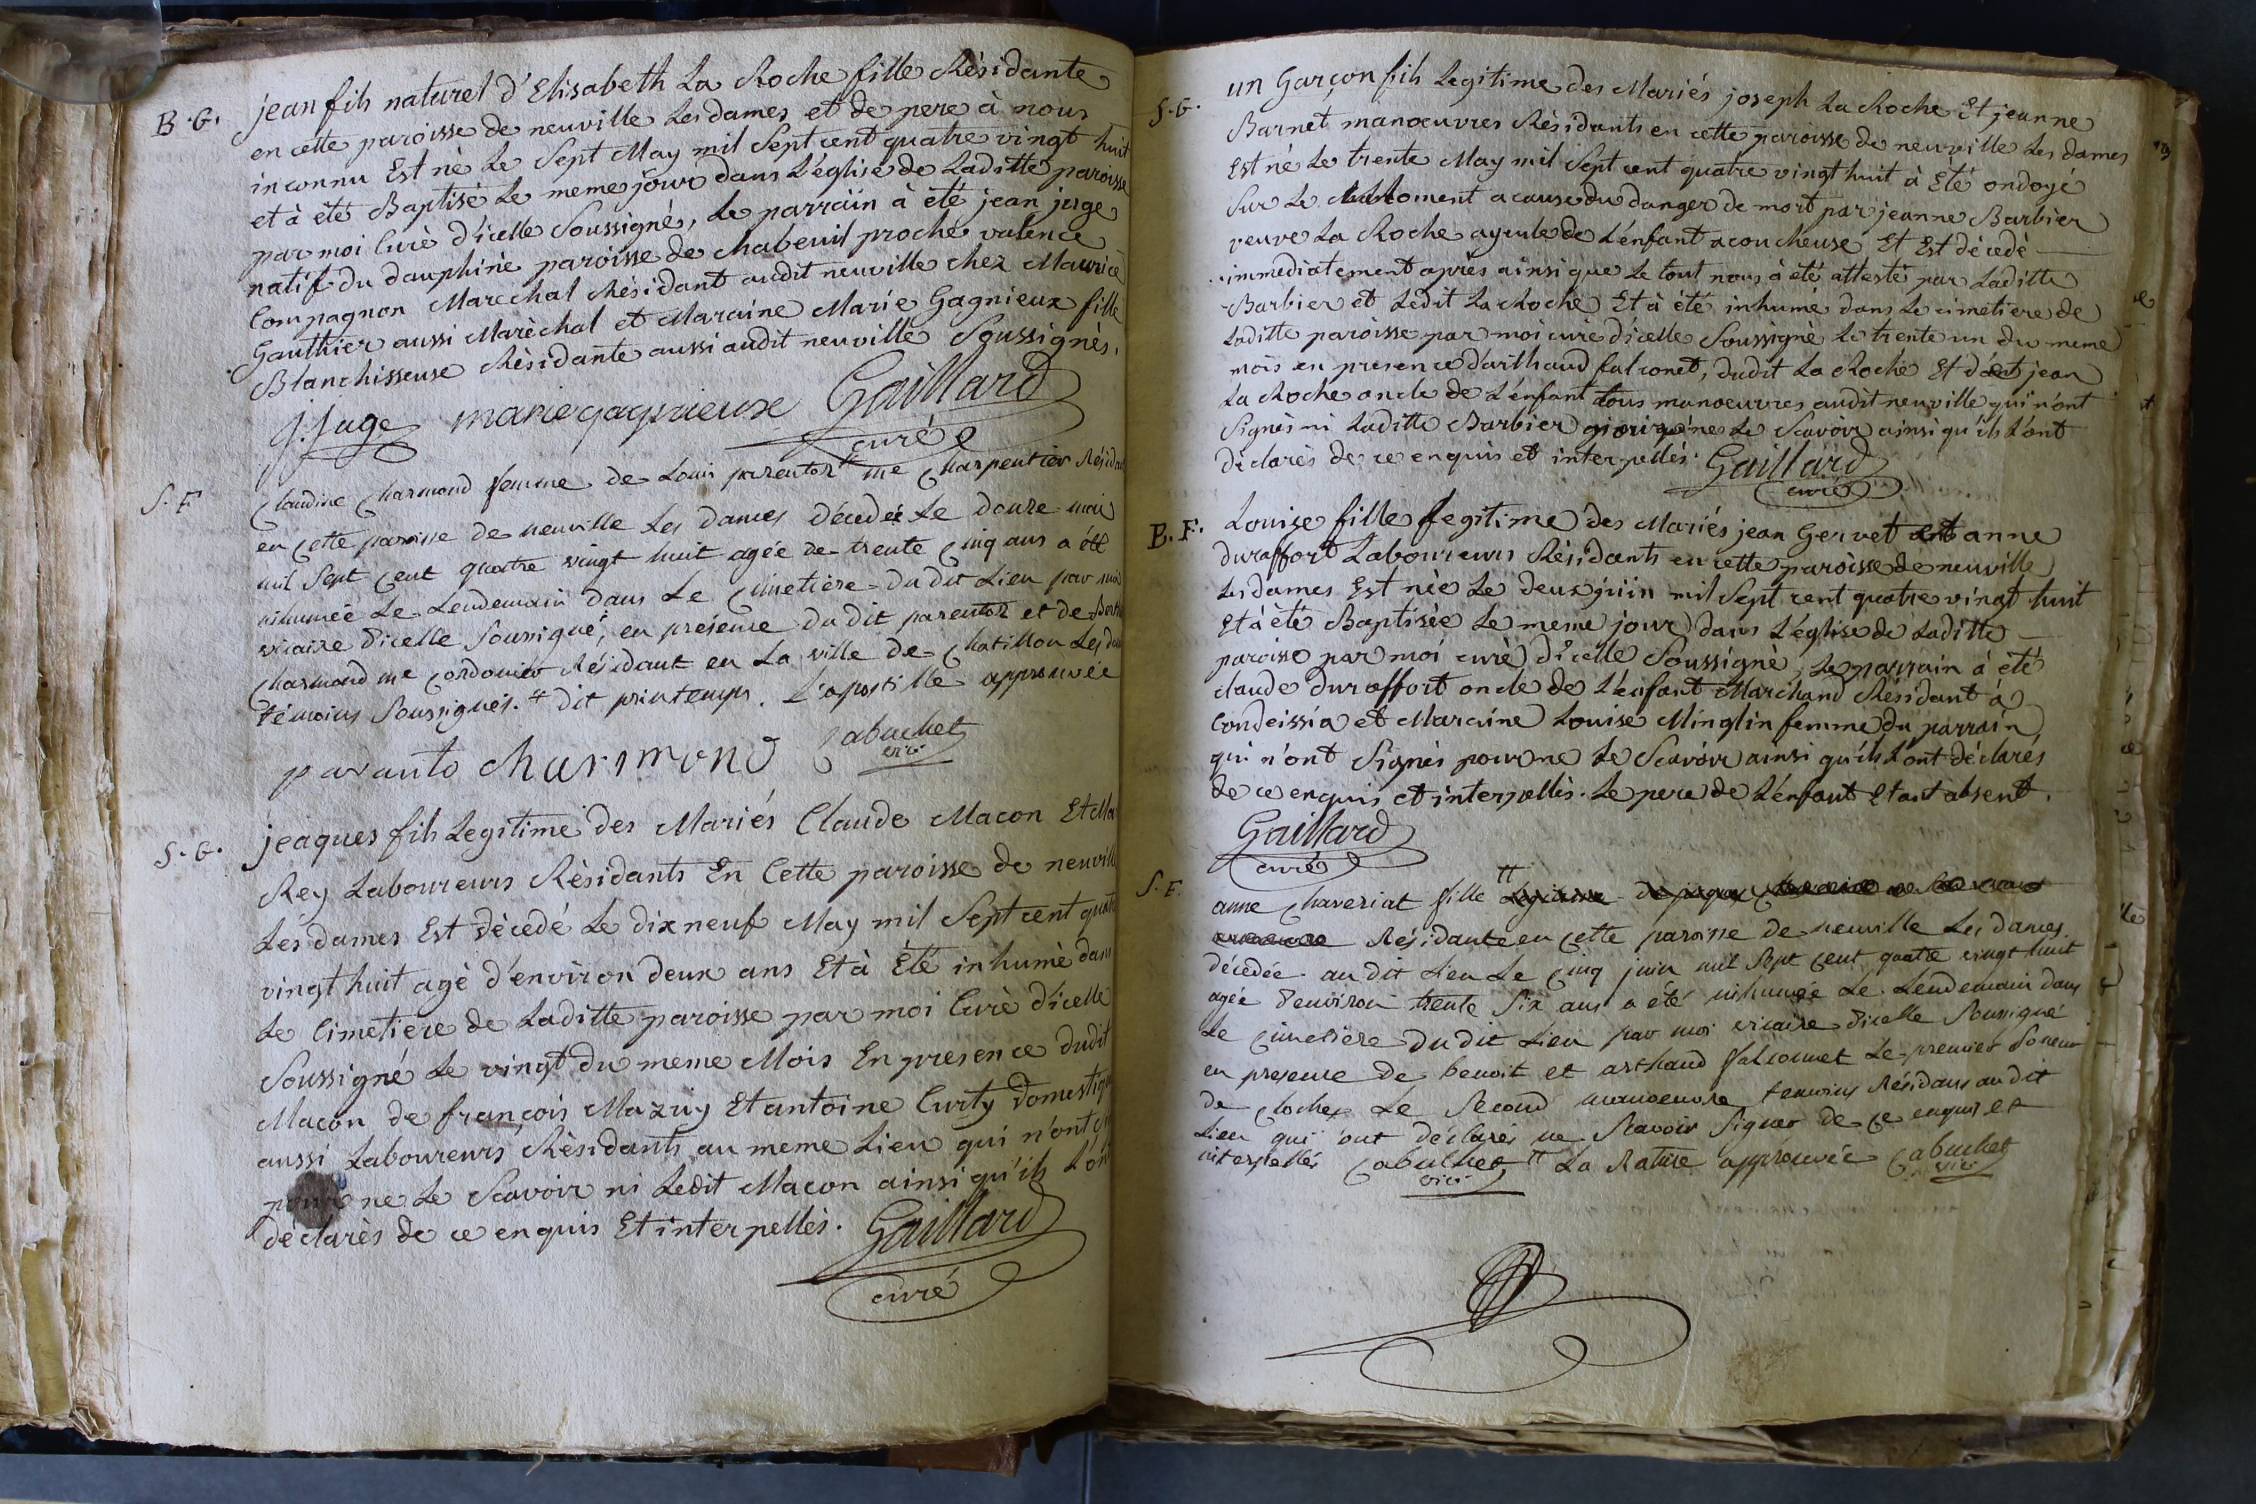 B.G.
jean fils naturel d'Elisabeth La Roche fille Résidante
en cette paroisse de neuville Les dames et de pere à nous
inconnu Est né Le Sept May mil Sept cent quatre vingt huit
et à été Baptisé Le meme jour dans L'église de Laditte paroisse
par moi Curé d'icelle Soussigné, Le parrain à été jean juge
natif du dauphiné paroisse de chabeuil proche valence
Compagnon Marechal Résidant audit neuville chez Maurice
Gauthier aussi Maréchal et Maraine Marie Gagnieux fille
Blanchisseuse Résidante aussi audit neuville Soussignés.
J. Juge marie gagnieuse Gaillard
curé
S. F
Claudine Charmond femme de Louis parentoz # me Charpentier Résidant
en cette paroisse de neuville Les dames décedée Le douze mai
mil Sept Cent quatre vingt huit agée de trente Cinq ans a été
inhumée Le Lendemain dans Le Cimetière du dit Lieu par moi
vicaire d'icelle Soussigné, en présence du dit parentoz et de
Charmond me Cordonier Résidant en La ville de Chatillon Les
témoins Soussignés. # dit printemps. L'apostille approuvée
paranto Charmond Cabuchet
vic.
S. G.
jeaques fils Legitime des Mariés Claude Macon Et
Rey Laboureurs Résidants En Cette paroisse de neuville
Les dames Est décedé Le dix neuf May mil Sept cent quatre
vingt huit agé d'environ deux ans Et à Eté inhumé dans
Le Cimetiere de Laditte paroisse par moi Curé d'icelle
Soussigné Le vingt du meme Mois En presence dudit
Macon de françois Mazuy Et antoine Curty domestique
aussi Laboureurs Résidants au meme Lieu qui n'ont
pour ne Le Scavoir ni Ledit Macon ainsi qu'ils L'ont
déclarés de ce enquis Et interpellés. Gaillard
curé
S. G.
un Garçon fils Legitime des Mariés joseph La Roche Et jeanne
Barnet manœuvres Résidants en cette paroisse de neuville Les dames
Est né Le trente May mil Sept cent quatre vingt huit à Eté ondoyé
Sur Le Moment a cause du danger de mort par jeanne Barbier
veuve La Roche ayeule de L'enfant acoucheuse Et Est décedé
immediatement aprés ainsi que Le tout nous à été attesté par Laditte
Barbier et Ledit La Roche Et à été inhumé dans Le cimetiere de
Laditte paroisse par moi curé d'icelle Soussigné Le trente un du meme
mois en presence d'arthaud falconet, dudit La Roche Et de jean
La Roche oncle de L'enfant tous manœuvres audit neuville qui n'ont
Signés ni Laditte Barbier pour ne Le Scavoir ainsi qu'ils L'ont
déclarés de ce enquis et interpellés. Gaillard
curé
B. F.
Louise fille Legitime des Mariés jean Gervet et anne
duraffort Laboureurs Résidants en cette paroisse de neuville
Les dames Est née Le deux juin mil Sept cent quatre vingt huit
Et à été Baptisée Le meme jour dans L'église de Laditte
paroisse par moi curé d'icelle Soussigné, Le parrain à été
claude duraffort oncle de L'enfant Marchand Résidant à
Condeissia et Maraine Louise Minglin femme du parrain,
qui n'ont Signés pour ne Le Scavoir ainsi qu'ils L'ont déclarés
de ce enquis et interpellés. Le pere de L'enfant Etant absent.
Gaillard
curé
S. F.
anne Chaveriat fille # Legitime de
Résidante en Cette paroisse de neuville Les dames
décedée au dit Lieu Le Cinq juin mil Sept Cent quatre vingt huit
agée d'environ trente Six ans a été inhumée Le Lendemain dans
Le Cimetière du dit Lieu par moi vicaire d'icelle Soussigné
en presence de benoit et arthaud falconnet Le premier Soneur
de Cloches Le Second manoeuvre temoins Résidans au dit
Lieu qui ont déclarés ne Scavoir Signer de Ce enquis et
interpellés Cabuchet # La Rature approuvée Cabuchet
vic. vic.